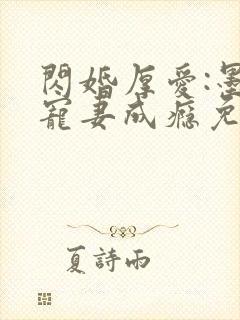 閃婚厚愛:墨
寵妻成癮免
夏詩雨